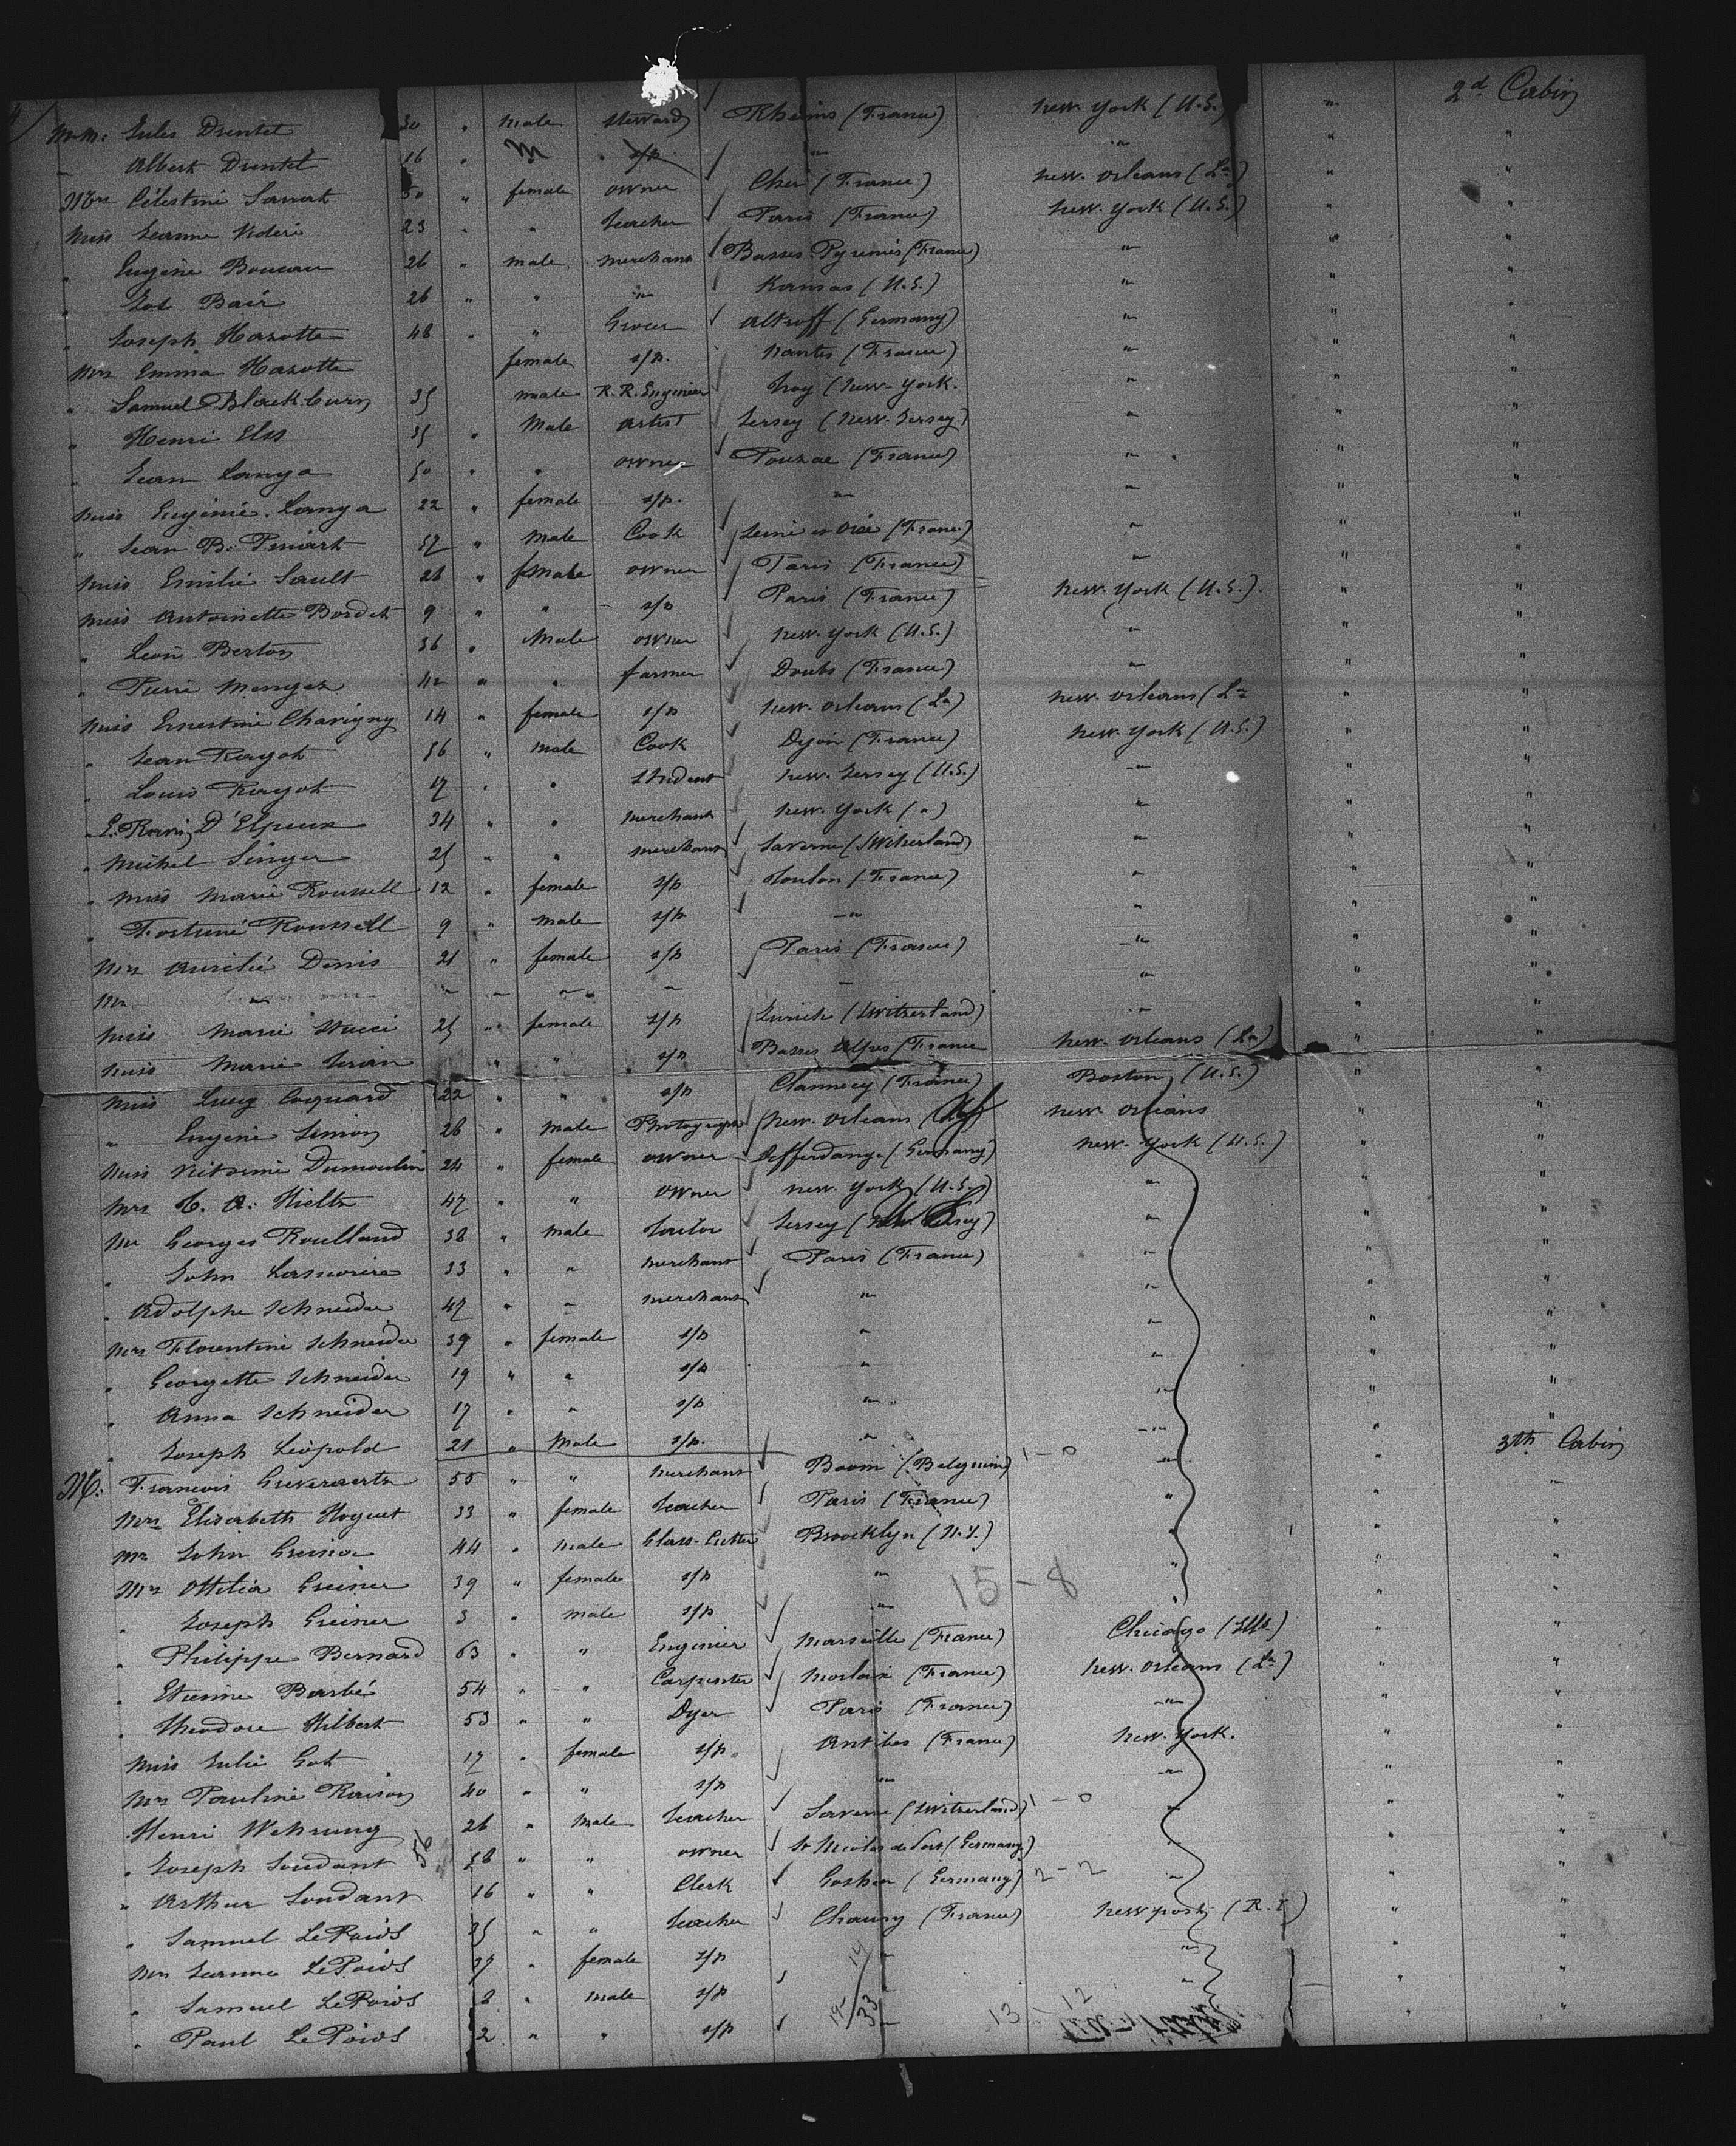 Jules Drentel 30 " male Steward Rheims (France) New-York (U.S.) " 2d Cabin
Albert Drentel 16 " M s/p " " " "
Mrs Célestine 50 " female owner Cher (France) New-Orleans (La) " "
Miss Jeanne 23 " " teacher Paris (France) New-York (U.S.) " "
" Eugène Boucau 26 " male merchant Basses Pyrenées (France) " " "
" Job Baer 26 " " " Kansas (U.S.) " " "
" Joseph Hazotte 48 " " Grocer Altroff (Germany) " " "
Mrs Emma Hazotte female s/p. Nantes (France) " " "
" Samuel Blackburn 35 male R.R. Engineer Troy (New-York. " " "
" Henri 35 " Male artist Jersey (New-Jersey) " " "
" Jean Lanya 50 " " owner Pouzac (France) " " "
Miss Eugénie Lanya 22 " female s/p. " " " "
" Jean B. 57 " Male Cook Seine et Oise (France) " " "
Miss Emilie Sault 26 " female owner Paris (France) " " "
Miss Antoinette Bordet 9 " " s/p Paris (France) New-York (U.S.). " "
" Léon Berton 36 " Male owner New-York (U.S.) " " "
" Pierre 42 " " farmer Doubs (France) " " "
Miss Ernestine Chavigny 14 " female s/p New-Orleans (La) New-Orleans (La " "
" Jean Rayot 56 " male Cook Dijon (France) New-York (U.S.) " "
" Louis Rayot 17 " " Student New-Jersey (U.S.) " " "
" E. D'Elpeux 34 " " merchant New-York (") " " "
" Michel Singer 25 " " merchant Saverne (Switzerland) " " "
" Miss Marie Roussell 12 " female s/p Toulon (France) " " "
" Fortuné Roussell 9 " male s/p " " " "
Mrs Aurélie Denis 21 " female s/p Paris (France) " " "
Mr " " " " " " " " "
Miss Marie Stucci 25 " female s/p Zurich (Switzerland) " " "
Miss Marie " " s/p Basses Alpes (France New-Orleans (La) " "
Miss Lucy Coquard 22 " " s/p Clamecy (France) Boston (U.S.) " "
" Eugène Simon 28 " male Photograph New-Orleans New-Orleans " "
Miss Victorine Dumoulin 24 " female owner Differdange (Germany) New-York (U.S.) " "
Mrs C. A. 47 " " owner New-York (U.S.) " " "
Mr Georges Roulland 38 " male tailor Jersey (New-Jersey) " " "
" John 33 " " merchant Paris (France) " " "
" Adolphe Schneider 47 " " merchant " " " "
Mrs Florentine Schneider 39 " female s/p " " " "
" Georgette Schneider 19 " " s/p " " " "
" Anna Schneider 17 " " s/p " " " "
" Joseph Léopold 21 " Male s/p. " " " 3th Cabin
M. François Greveraerts 55 " " merchant Boom (Belgium) 1-0 " " "
Mrs Elisabeth Hoguet 33 " female teacher Paris (France) " " "
Mr John Greiner 44 " male Glass-Cutter Brooklyn (N.Y.) " " "
Mrs Ottilia Greiner 39 " female s/p " 15-8 " " "
" Joseph Greiner 3 " male s/p " " " "
" Philippe Bernard 63 " " Enginier Marseille (France) Chicago (Ills) " "
" Etienne Barbé 54 " " Carpenter Morlaix (France) New-Orleans (La) " "
" Theodore Hilbert 53 " " Dyer Paris (France) " " "
Miss Julie Got 17 " female s/p. Antibes (France) New-York. " "
Mrs Pauline Raison 40 " " s/p " " " "
Henri Wehrung 26 " Male teacher Saverne (Switzerland) 1-0 " " "
" Joseph Soudant 56 58 " " owner St Nicolas de Port (Germany) " " "
" Arthur Soudant 16 " " Clerk (Germany) 2-2 " " "
" Samuel LePoids 35 " " teacher Chauny (France) Newport (R.I) " "
Mrs Jeanne LePoids 37 " female s/p " " " "
" Samuel LePoids 8 " male s/p " " " "
" Paul LePoids 2 " " s/p " 13-12 " "